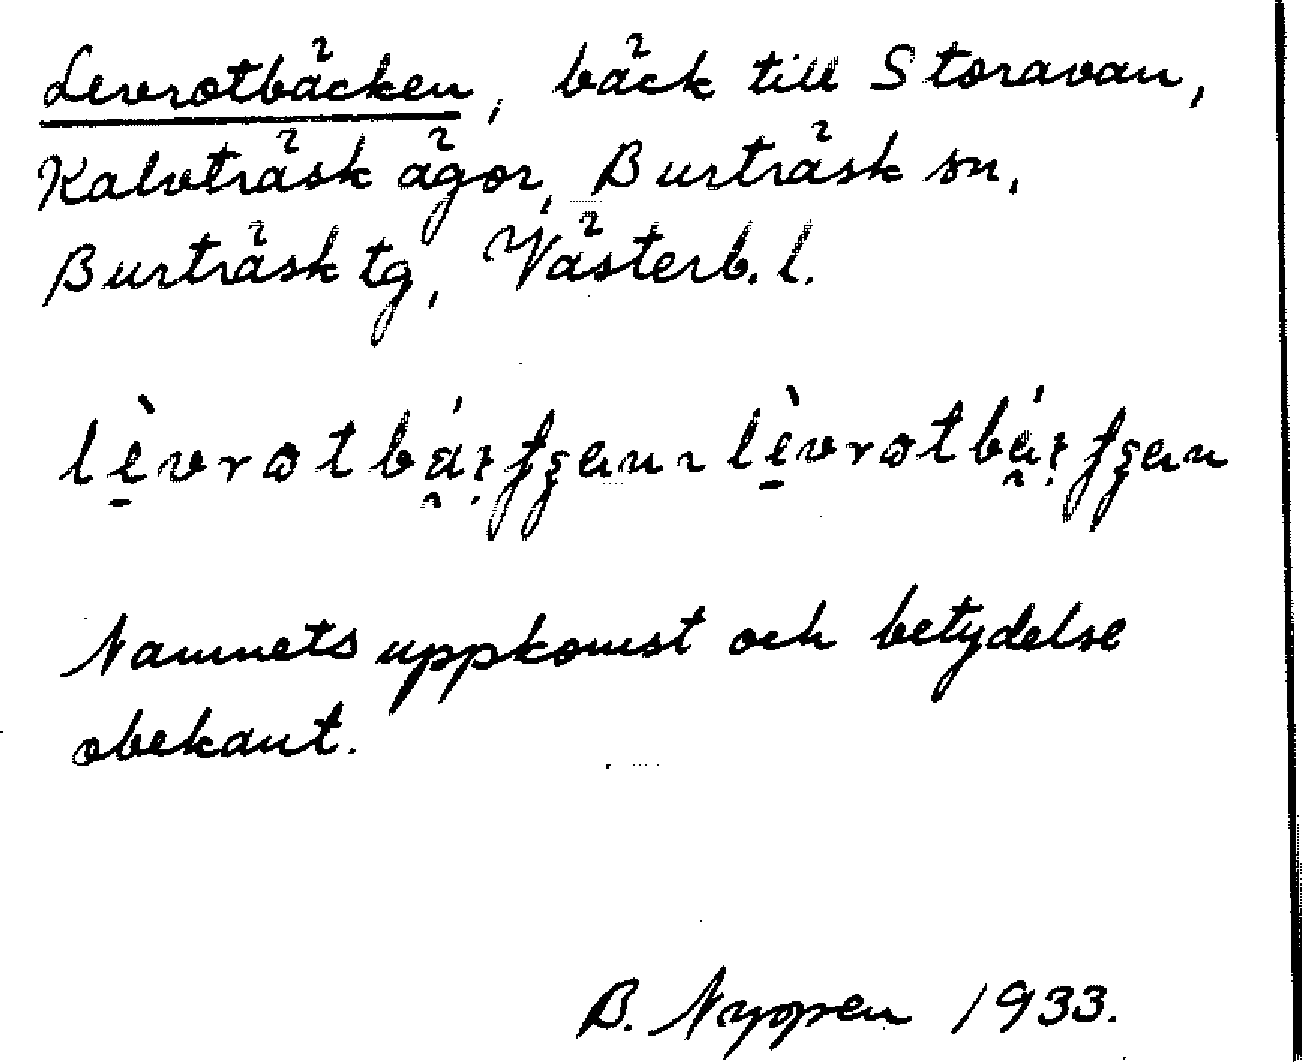 Levrotbäcken, bäck till Storavan,
Kalvträsk ägor, Burträsk sn,
Burträsk tg, Västerb. l.
Namnets uppkomst och betydelse
obekant.
B. Nyopen 1933.